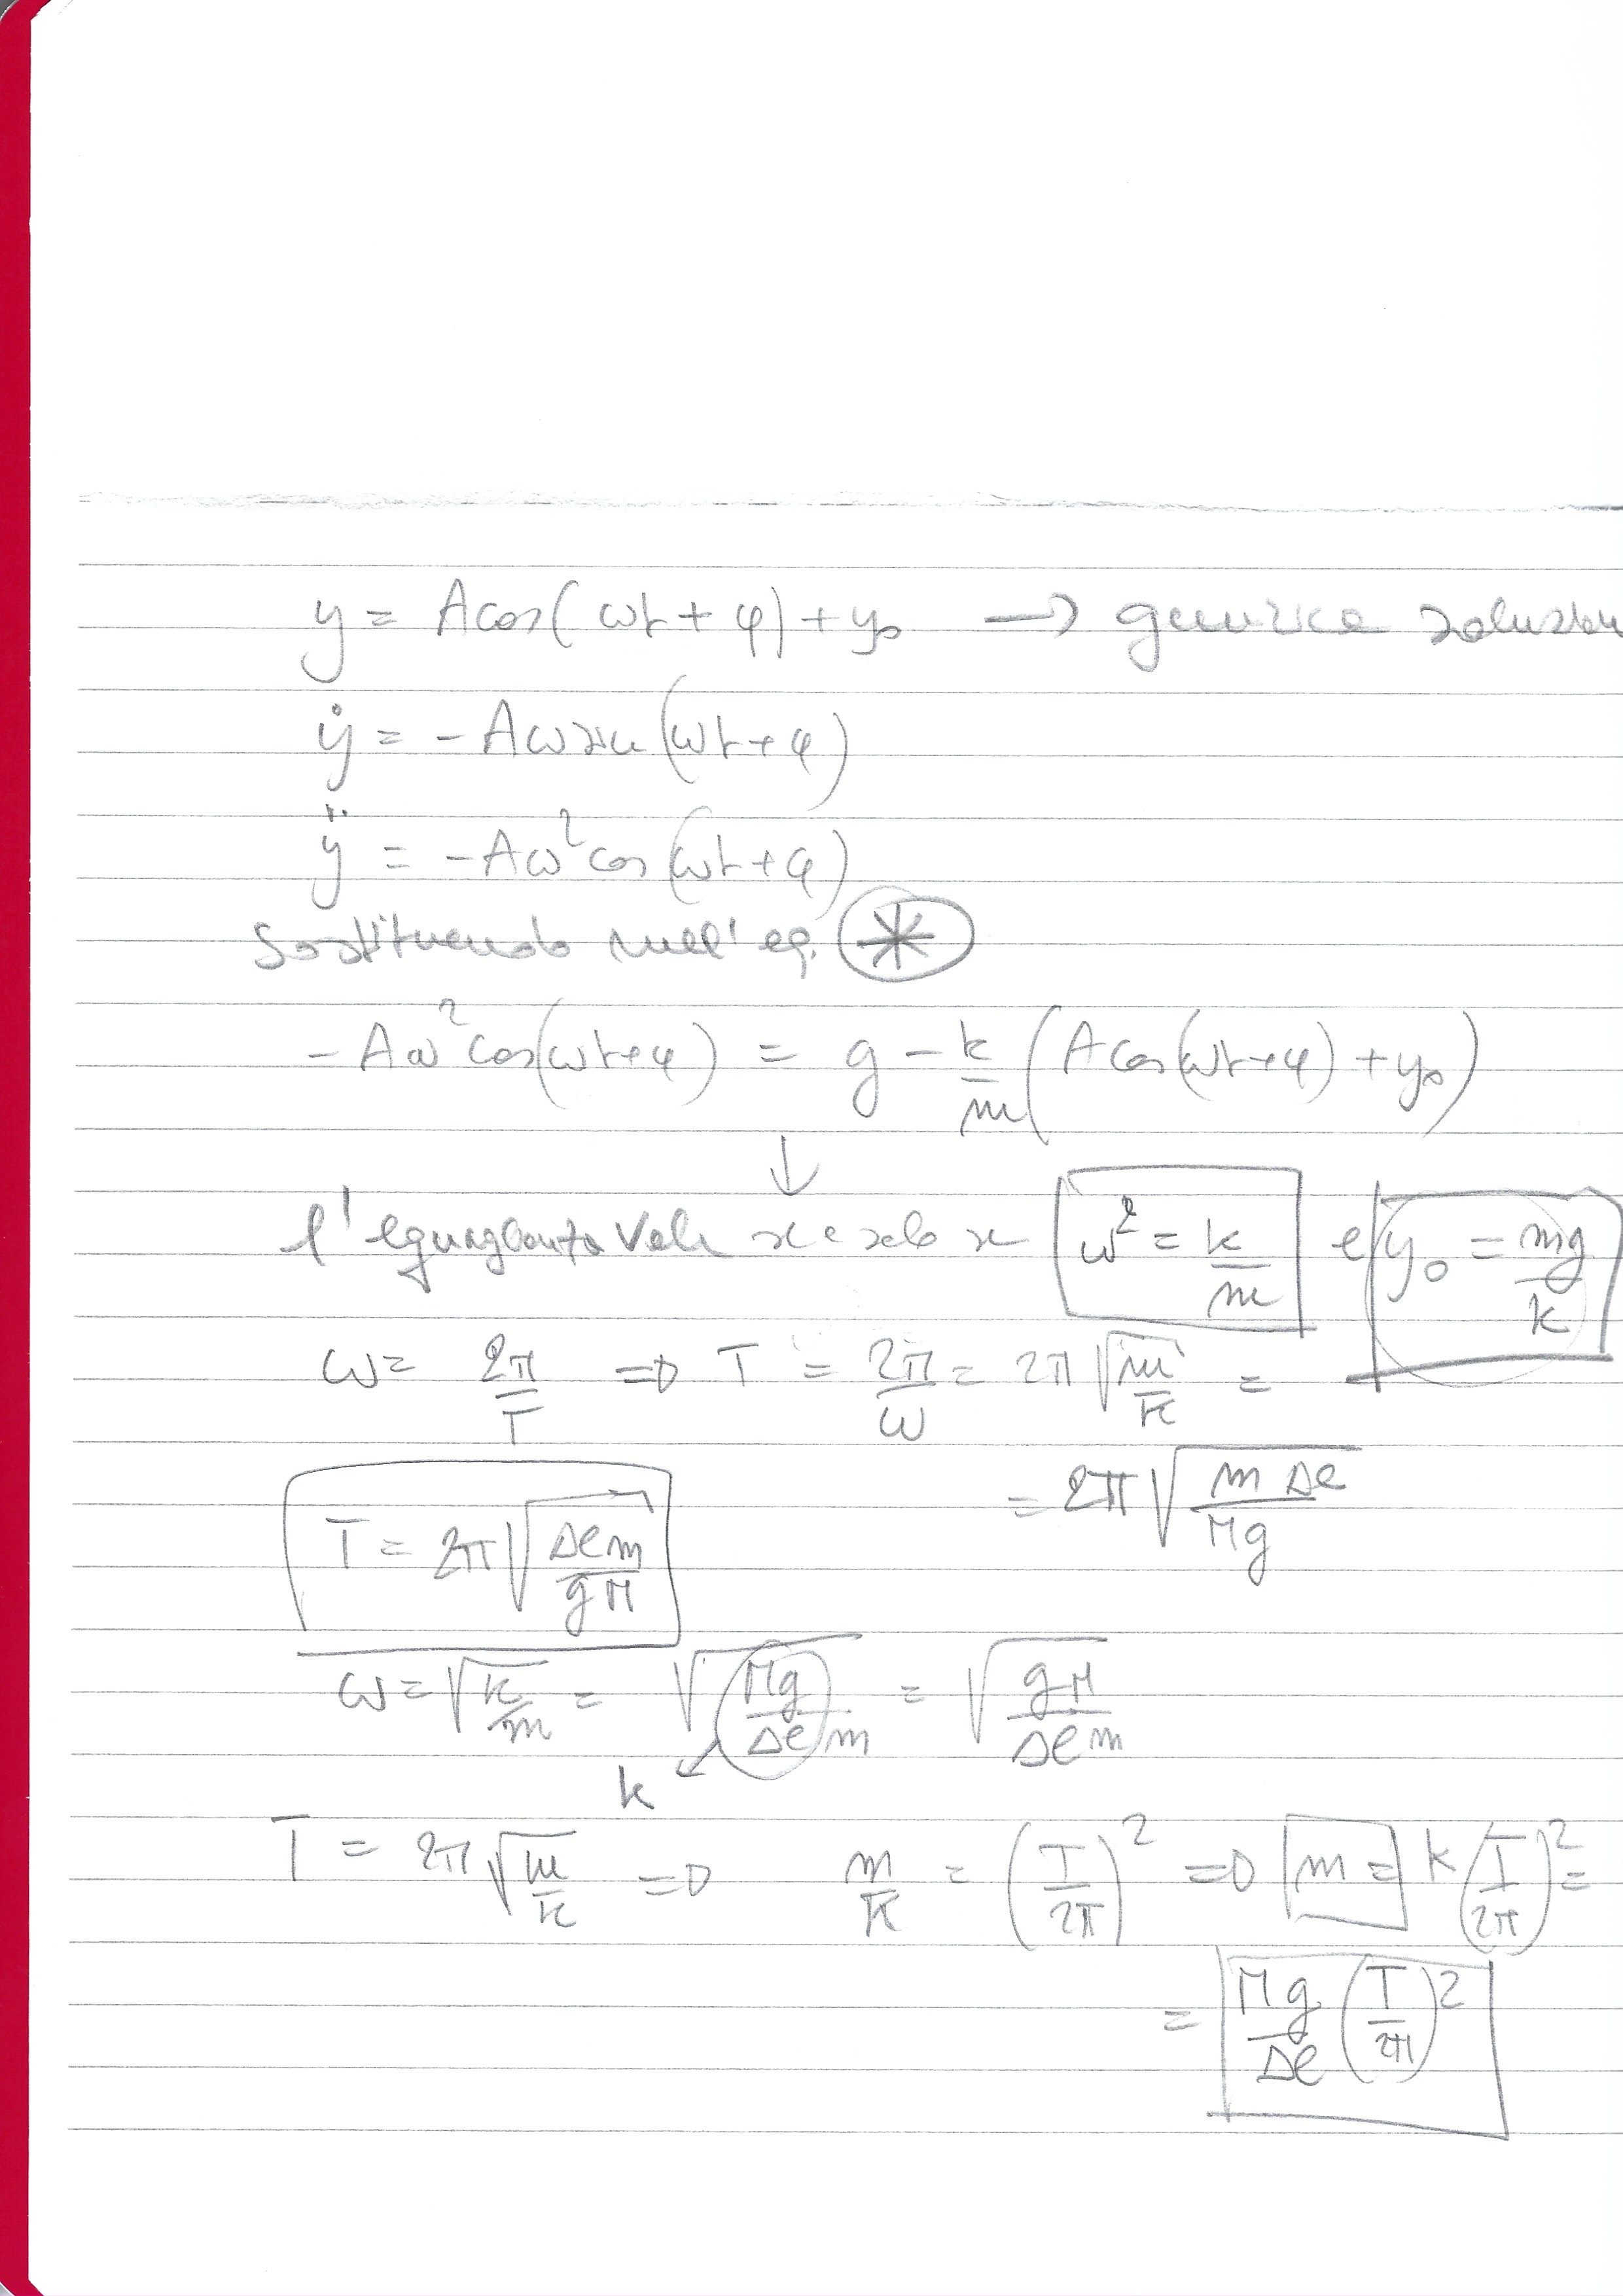 y = A cos(ωt + φ) + y₀ → generica soluzion
ẏ = -Aω sin(ωt+φ)
ÿ = -Aω² cos(ωt+φ)
Sostituendo nell'eq. ⊛
-Aω² cos(ωt+φ) = g - k/m (A cos(ωt+φ) + y₀)
↓
l'eguaglianza vale se e solo se ω² = k/m e y₀ = mg/k
ω = 2π/T => T = 2π/ω = 2π √(m/k) =
= 2π √(m Δl / Mg)
T = 2π √(Δl m / g M)
ω = √(k/m) = √(Mg / Δl m) = √(g M / Δl m)
k
T = 2π √(m/k) => m/k = (T/2π)² => m = k (T/2π)² =
= Mg/Δl (T/2π)²